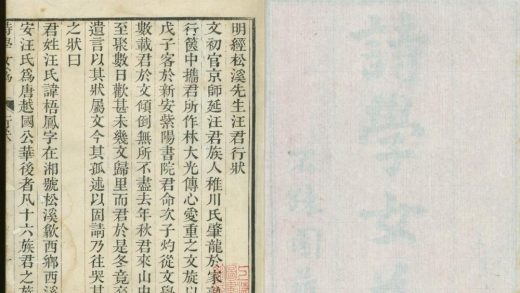 詩學女爲
明經松溪先生汪君行狀
文初官京師延汪君族人稚川氏肇龍於家
行篋中攜君所作林大光傳心愛重之文旋以
戊子客於新安紫陽書院君命次子灼從文學
數載君於文傾倒無所不盡去年秋君來山中
至聚數日歡甚未幾文歸里而君於是冬竟
遺言以其狀屬文今其孤以固請乃往哭其
之狀曰
君姓汪氏諱梧鳳字在湘號松溪歙西鄉西溪
安汪氏爲唐越國公華後者凡十六族君之族
詩學女爲
行狀
一